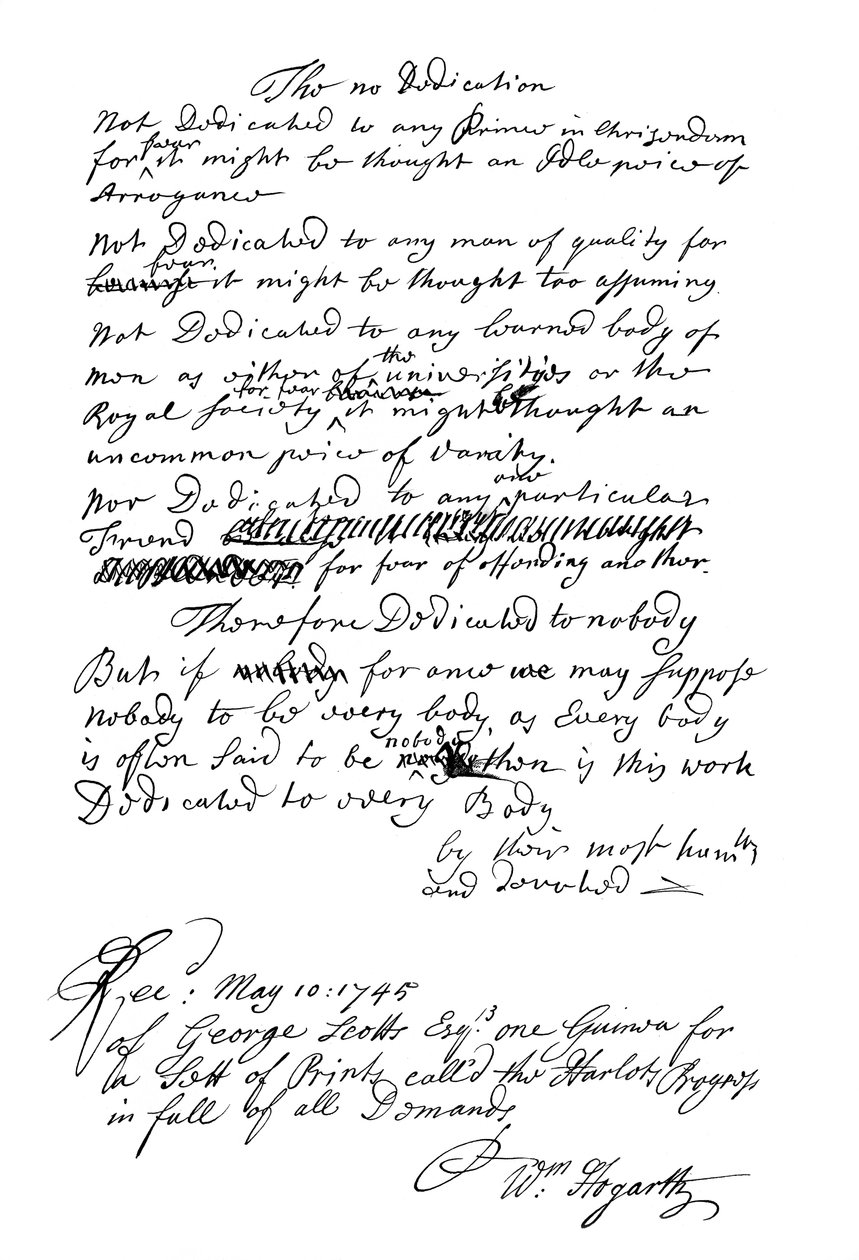 The no Dedication
Not Dedicated to any Prince in Chrisendom
for fear it might be thought an Idle peice of
Arrogance
Not Dedicated to any man of quality for
fear
because it might be thought too assuming.
Not Dedicated to any learned body of
men as either of the universities or the
Royal Society for fear it might be thought an
uncommon peice of Vanity.
Nor Dedicated to any one particular
Friend
for fear of offending another.
Therefore Dedicated to nobody
But if for once we may suppose
nobody to be every body, as Every body
is often said to be nobody then is this work
Dedicated to every Body
by their most humble
and devoted
Rec: May 10:1745
of George Scotts Esqr. one Guinea for
a Sett of Prints call'd the Harlots Progress
in full of all Demands
Wm: Hogarth